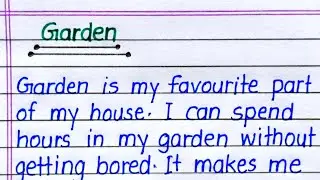 Garden
Garden is my favourite part
of my house. I can spend
hours in my garden without
getting bored. It makes me